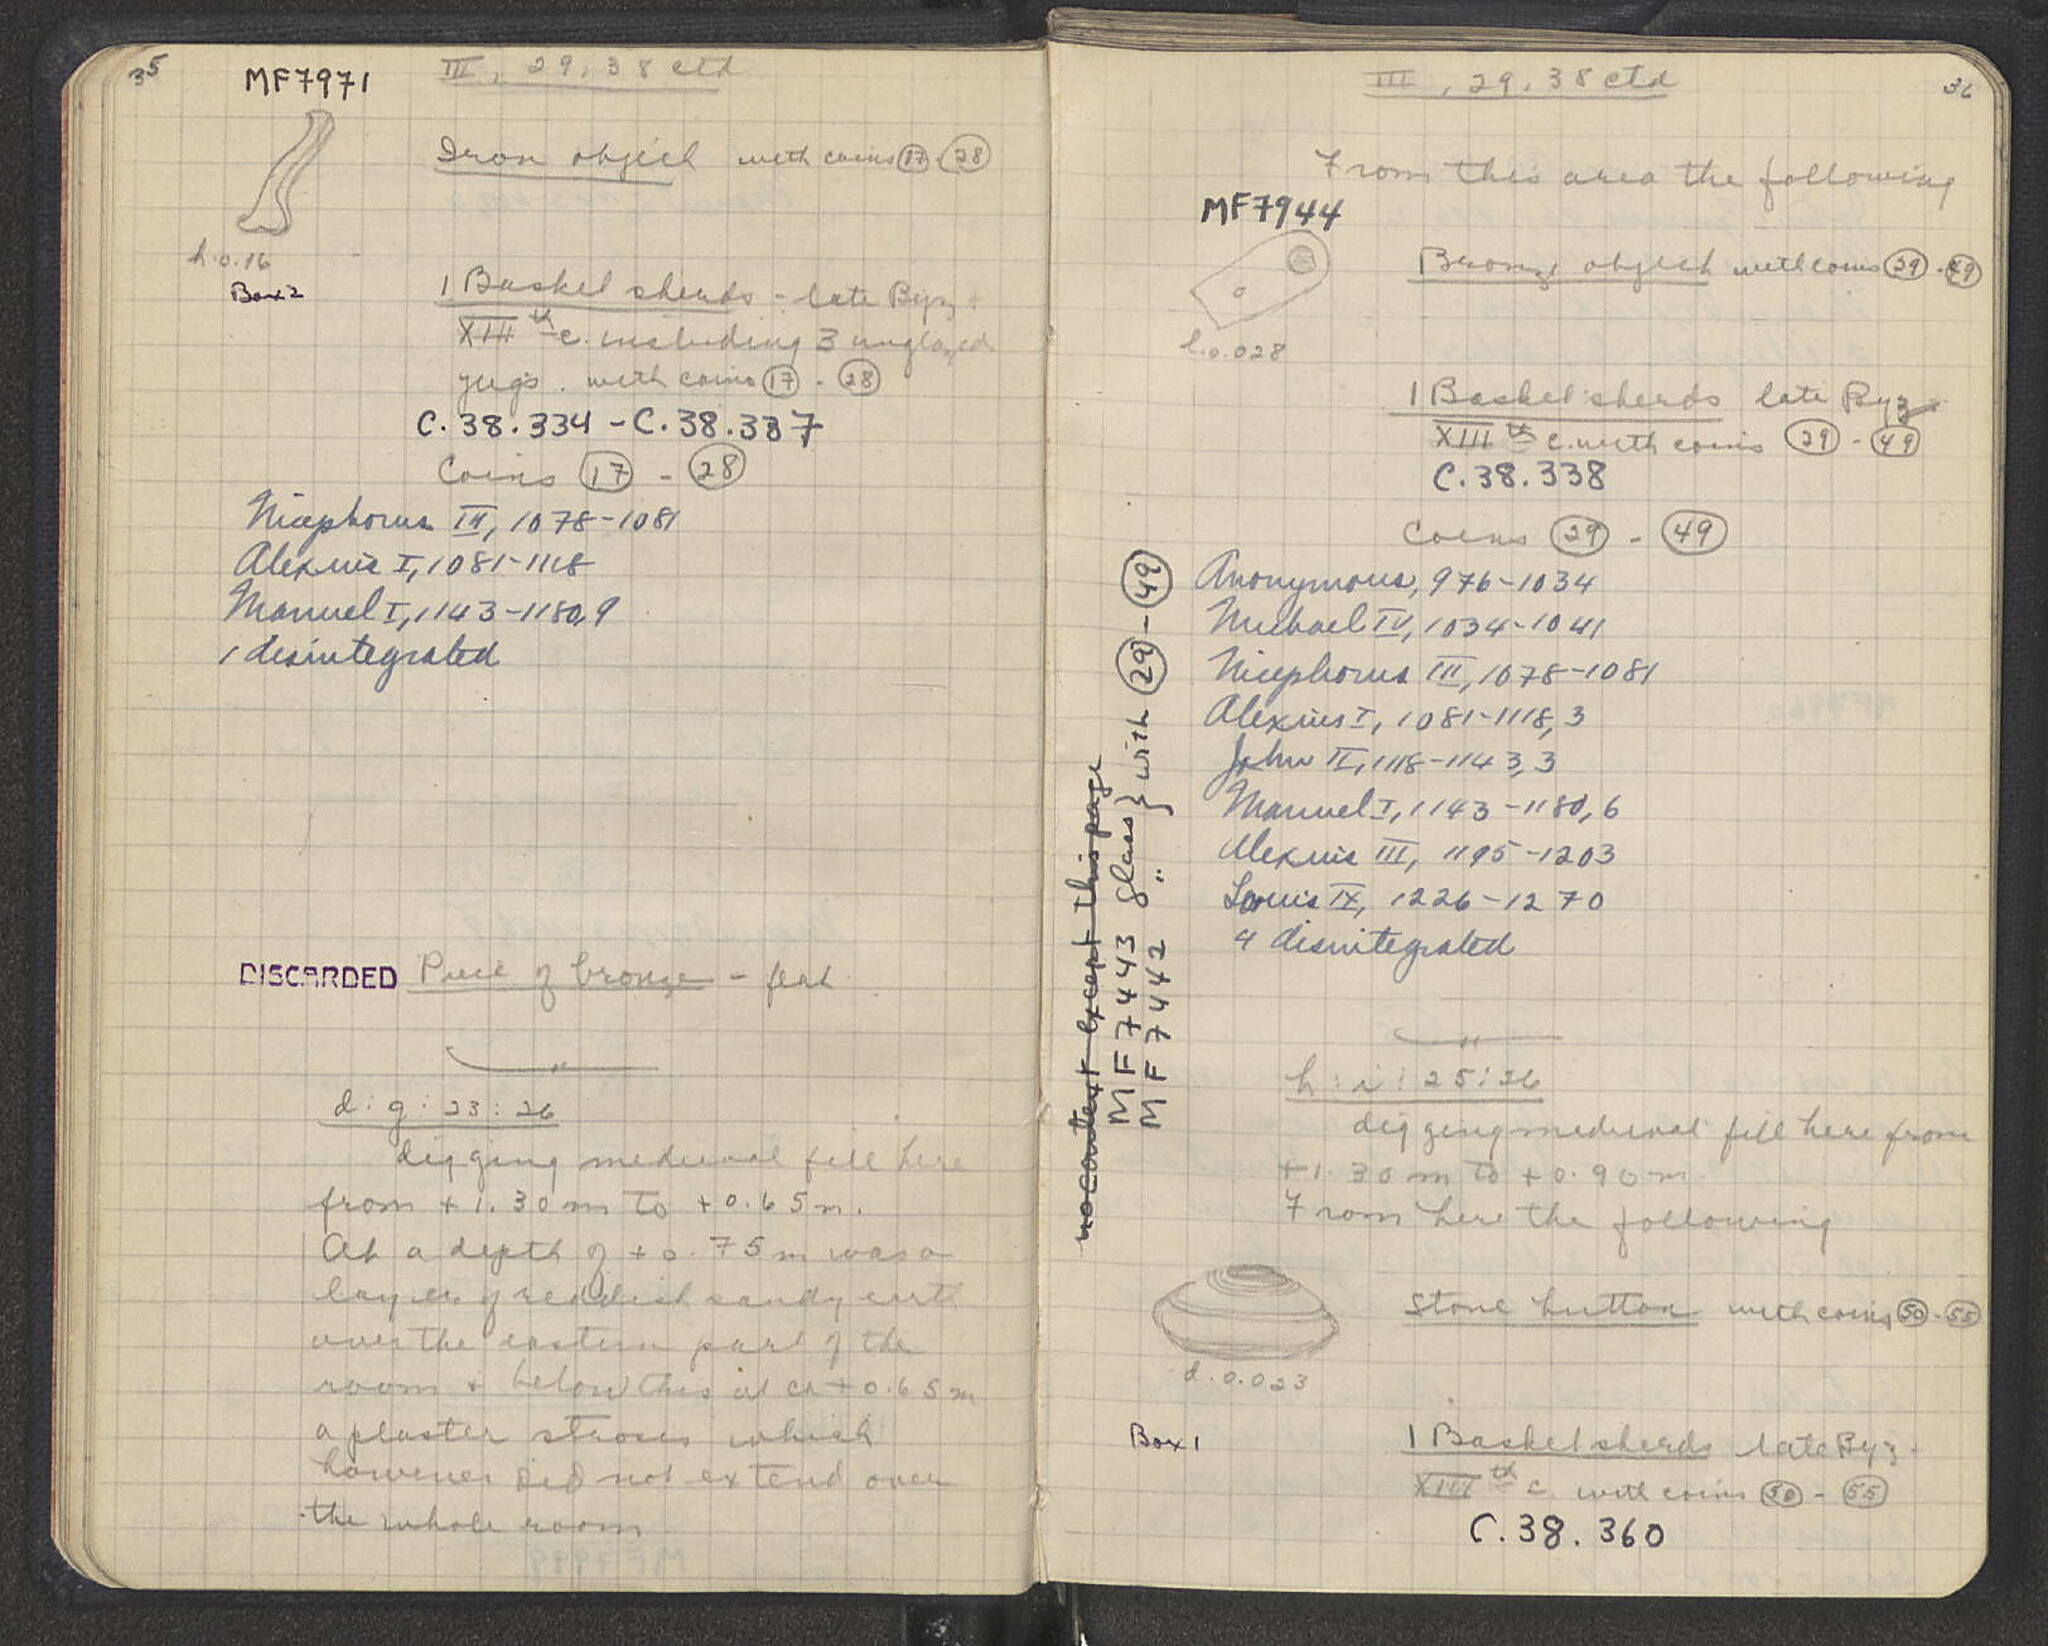 35
MF7971
III, 29, 38 ctd
Iron object with coins 17-28
h.0.16
Box 2
1 Basket sherds - late Byz +
XIIIth c. including 3 unglazed
jugs. with coins 17 - 28
C.38.334 - C.38.337
Coins 17 - 28
Nicephorus III, 1078-1081
Alexius I, 1081-1118
Manuel I, 1143-1180, 9
1 disintegrated
DISCARDED Piece of bronze - flat
d:g:23:26
digging medieval fill here
from +1.30m to +0.65m.
At a depth of +0.75m was a
layer of reddish sandy earth
over the eastern part of the
room + below this at ca +0.65m
a plaster stroses which
however did not extend over
the whole room
36
III, 29, 38 ctd
From this area the following
MF7944
Bronze object with coins 29-49
l.0.028
1 Basket sherds late Byz
XIIIth c. with coins 29 - 49
C.38.338
Coins 29 - 49
Anonymous, 976-1034
Michael IV, 1034-1041
Nicephorus III, 1078-1081
Alexius I, 1081-1118, 3
John II, 1118-1143, 3
Manuel I, 1143-1180, 6
Alexius III, 1195-1203
Louis IX, 1226-1270
4 disintegrated
no context except this page
MF7443 glass } with 29 - 49
MF7442 "
h:i:25:26
digging medieval fill here from
+1.30m to +0.90m.
From here the following
Stone button with coins 50-55
d.0.023
Box 1
1 Basket sherds late Byz -
XIIIth c. with coins 50 - 55
C.38.360